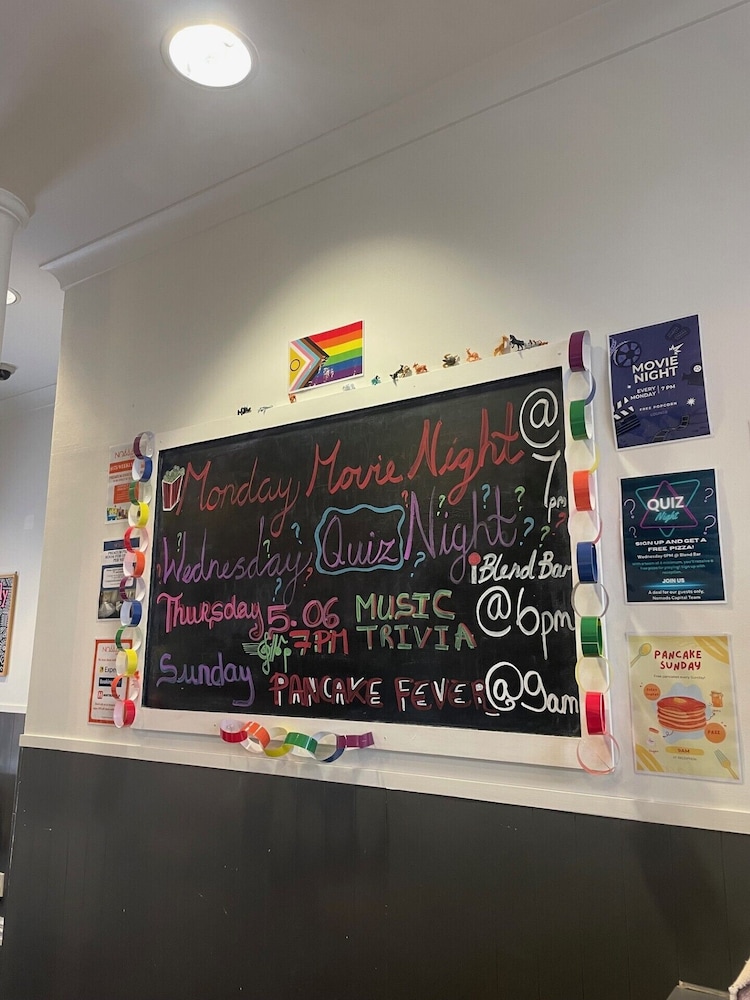 Monday Movie Night @ 7pm
Wednesday Quiz Night
Blend Bar
@6pm
Thursday 5.06 MUSIC
7PM TRIVIA
Sunday PANCAKE FEVER @9am
MOVIE
NIGHT
EVERY MONDAY | 7 PM
FREE POPCORN
QUIZ
Night
SIGN UP AND GET A
FREE PIZZA!
Wednesday 6PM @ Blend Bar
JOIN US
A deal for our guests only,
Nomads Capital Team
PANCAKE
SUNDAY
9AM